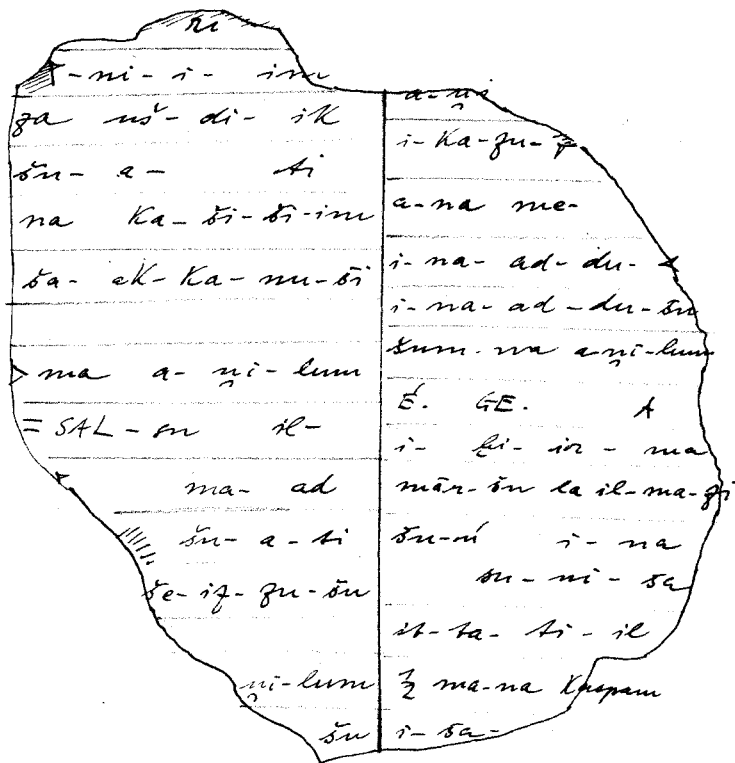 ri
-ni-i-im
za uš-di-ik
šu-a-ti
na ka-ši-ši-im
ša-ak-ka-nu-ši
ma a-u̯i-lum
SAL-su il-
ma-ad
šu-a-ti
še-iz-zu-šu
u̯i-lum
šu
a-u̯i
i-ka-zu-
a-na me-
i-na-ad-du-
i-na-ad-du-šu
šum-ma a-u̯i-lum
É. GE. A
i-ḫi-ir-ma
mār-šu la il-ma-zi
šu-ú i-na
su-ni-ša
it-ta-ti-il
½ ma-na kaspam
i-ša-